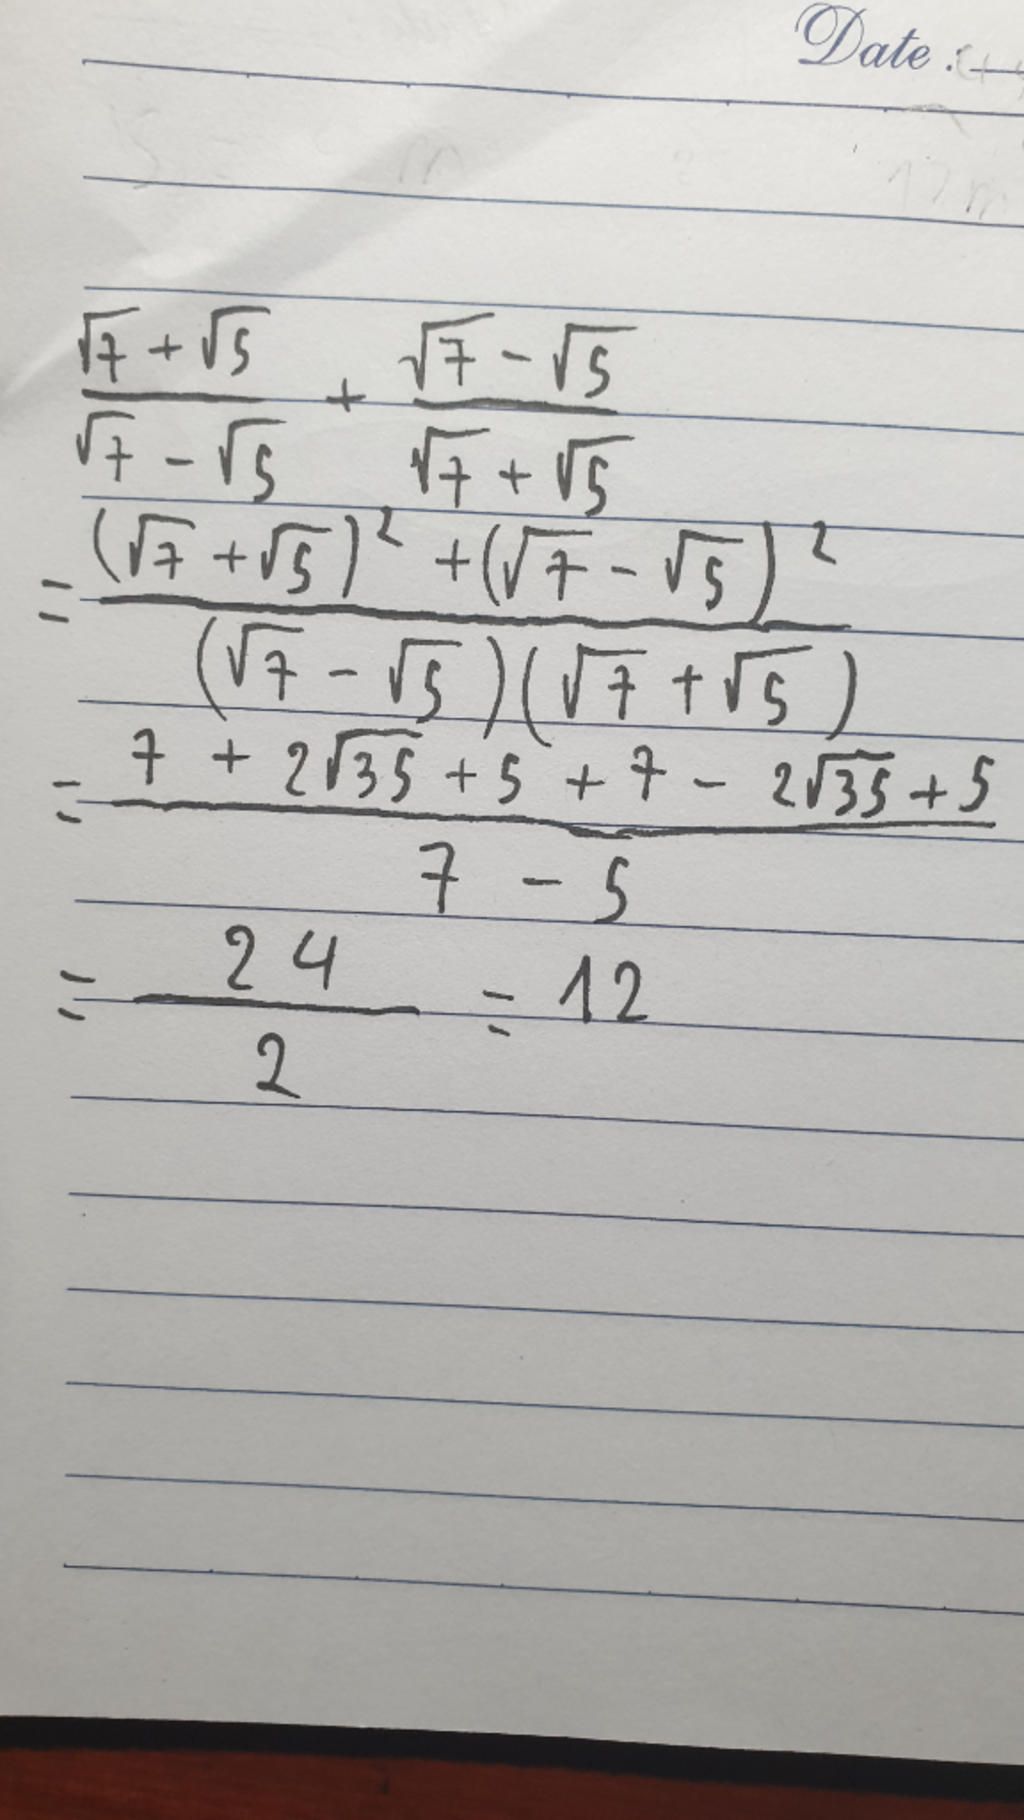 Date :
√7 + √5 / √7 - √5 + √7 - √5 / √7 + √5
= (√7 + √5)² + (√7 - √5)² / (√7 - √5)(√7 + √5)
= 7 + 2√35 + 5 + 7 - 2√35 + 5 / 7 - 5
= 24 / 2 = 12